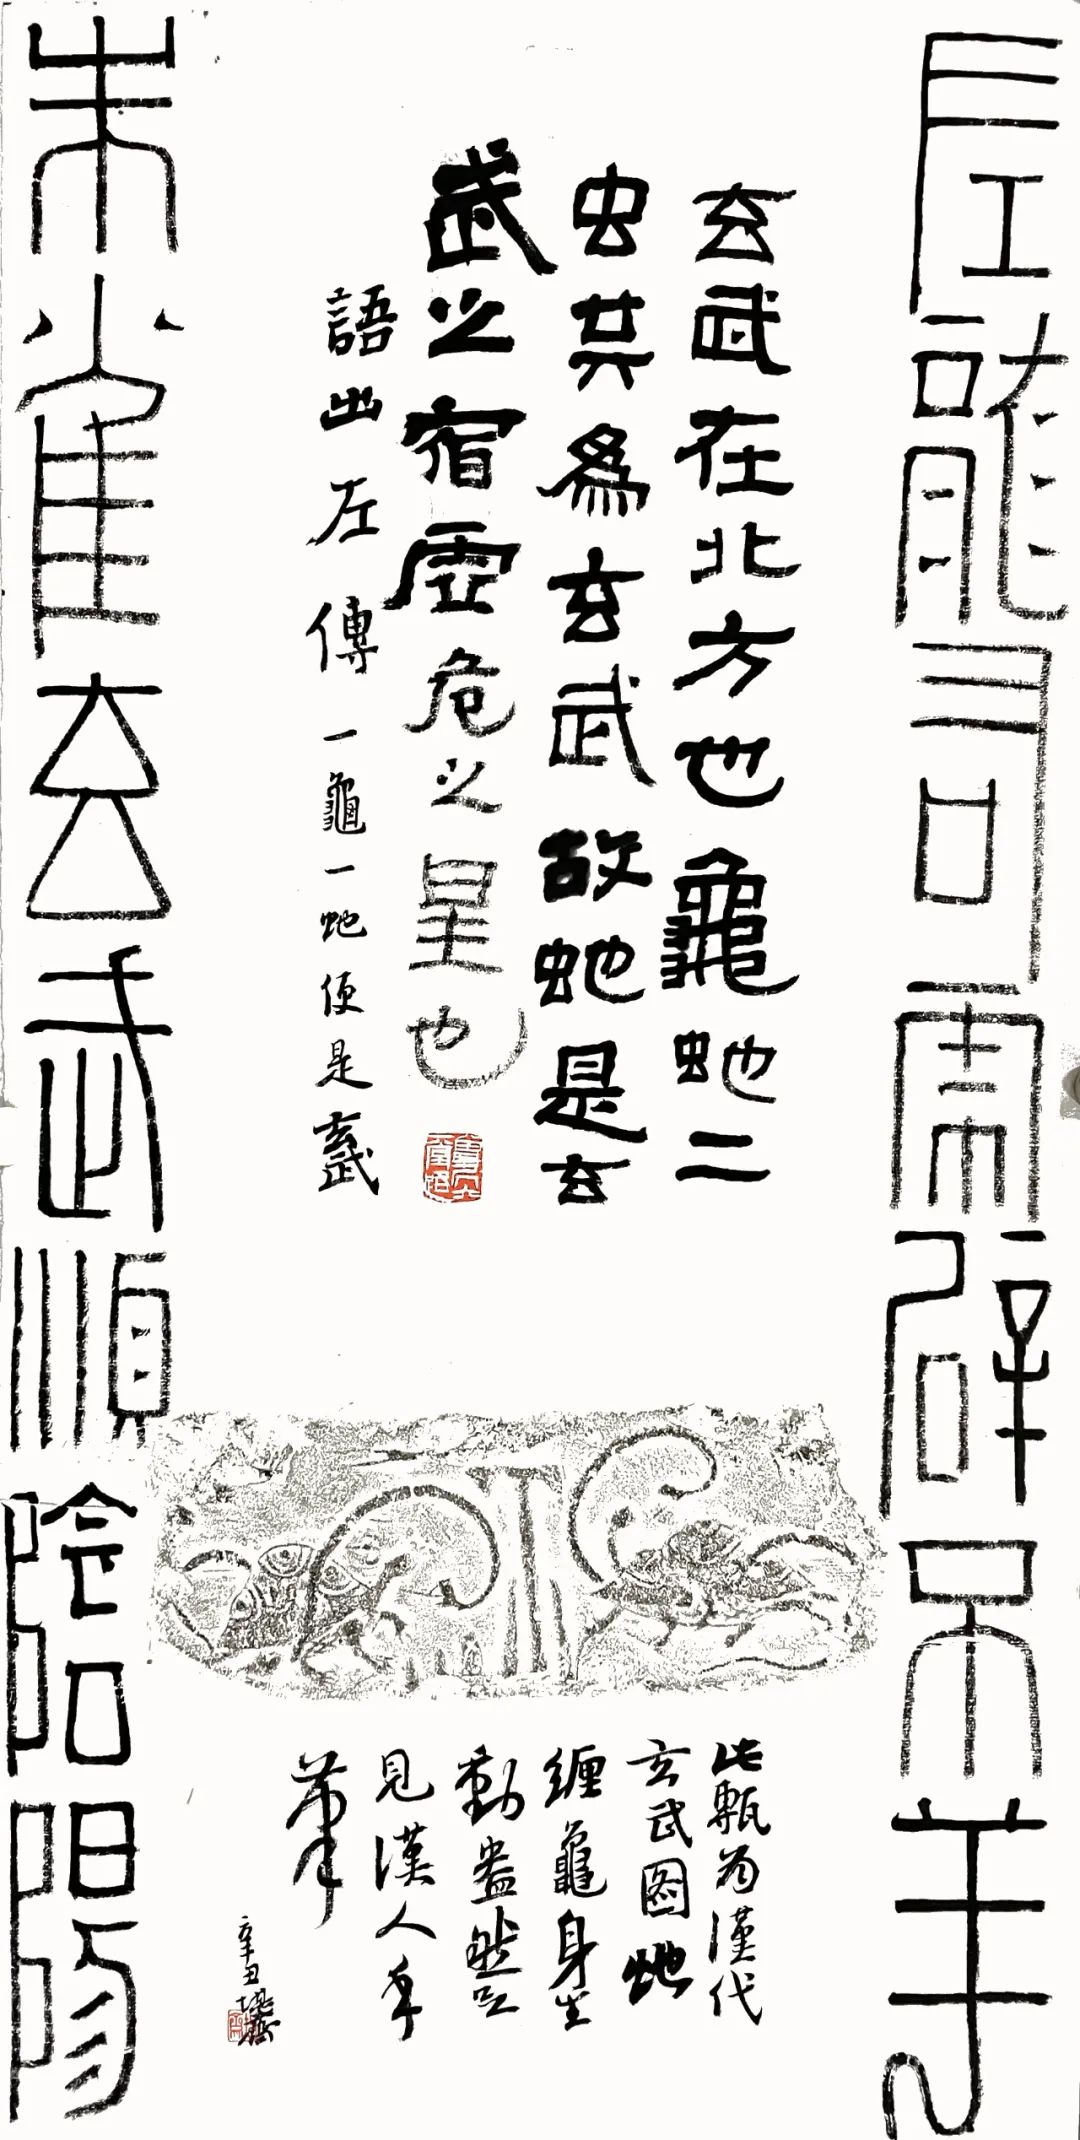 左龍右虎辟不羊
玄武在北方也龜虵二
虫共為玄武故虵是玄
武之宿虛危之星也
語出左傳一龜一虵便是玄武
朱雀玄武順陰陽
此甎為漢代
玄武圖虵
缠龜身生
動盎然足
見漢人手
筆
辛丑